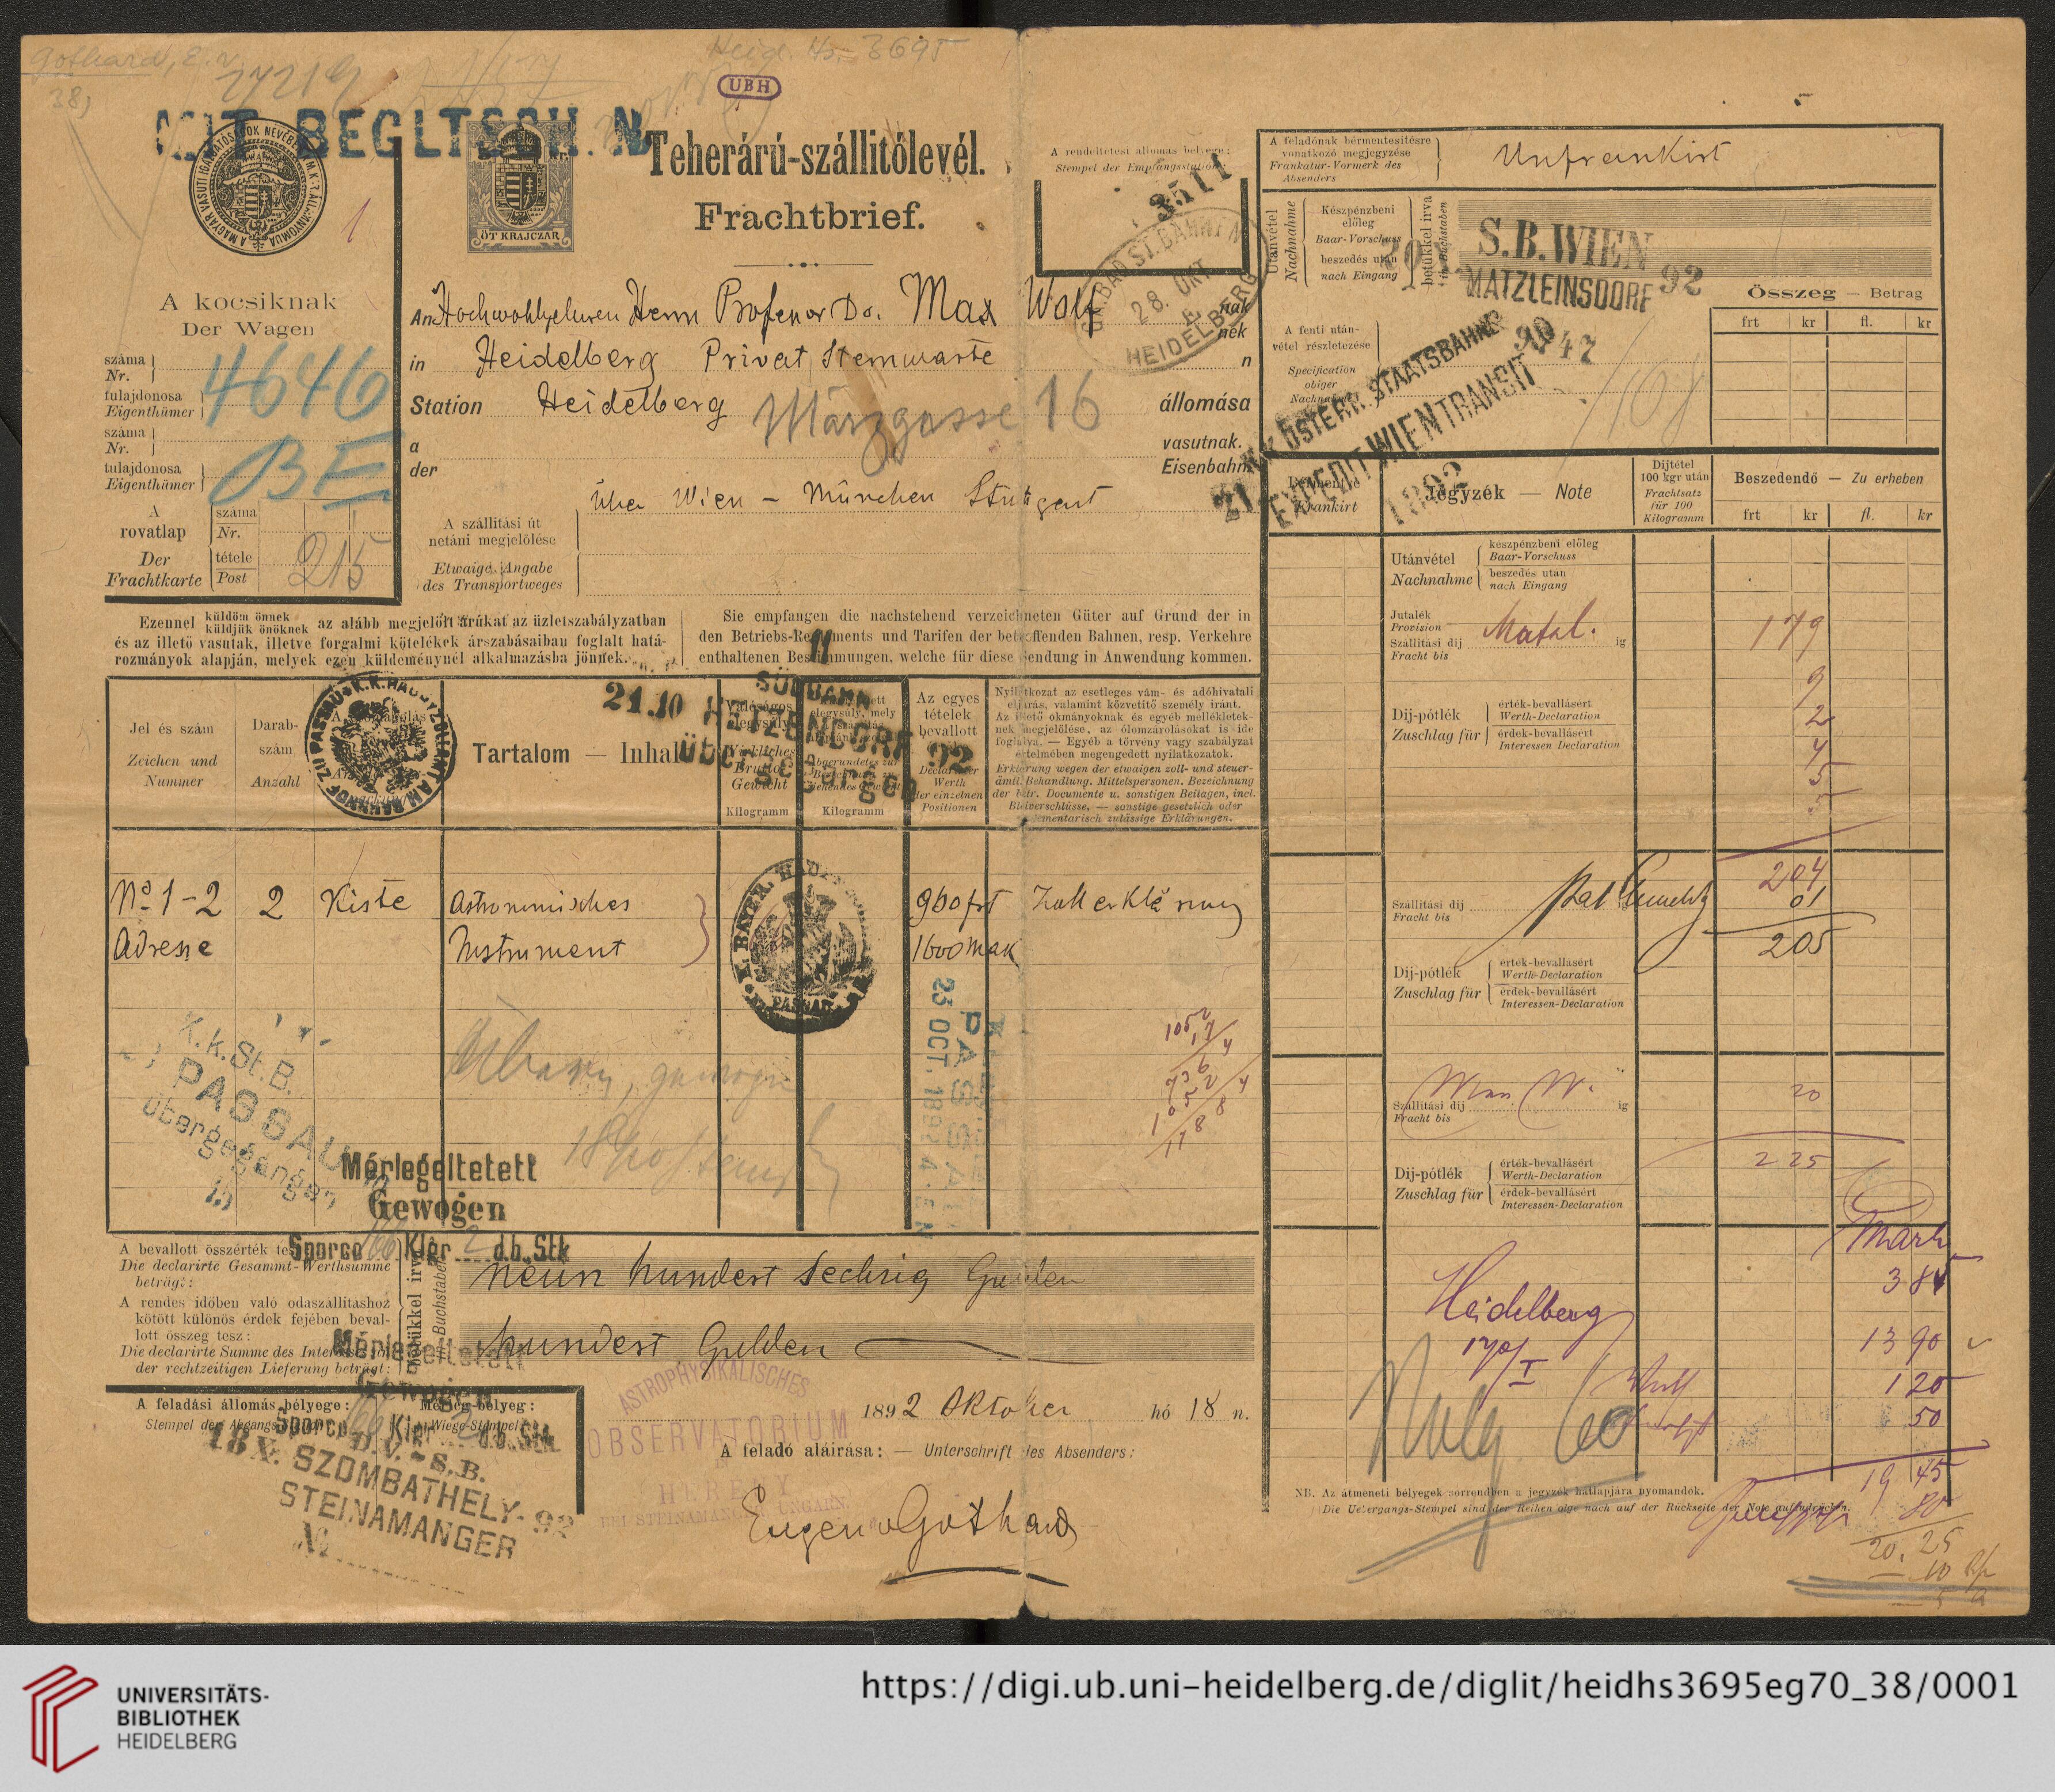 Gothard, E. v.
38)
Heid. Hs. 3695
UBH
Teherárú-szállitólevél.
Frachtbrief.
ÖT KRAJCZÁR
1
A kocsiknak
Der Wagen
száma
Nr.
tulajdonosa
Eigenthümer
4646
száma
Nr.
tulajdonosa
Eigenthümer
BE
A rovatlap
Der Frachtkarte
száma
Nr.
tétele
Post
215
An Hochwohlgeboren Herrn Professor Dr. Max Wolf
nak
nek
in Heidelberg Privat Sternwarte
n
Station Heidelberg Märzgasse 16 állomása
a
der
vasutnak.
Eisenbahn
A szállitási út
netáni megjelölése
Etwaige Angabe
des Transportweges
Über Wien – München Stuttgart
A rendeltetési állomás bélyege:
Stempel der Empfangsstation
3511
GR. BAD. ST. BAHNEN
28. OKT.
HEIDELBERG
Ezennel küldöm önnek
küldjük önöknek az alább megjelölt árúkat az üzletszabályzatban
és az illető vasutak, illetve forgalmi kötelékek árszabásaiban foglalt hatá-
rozmányok alapján, melyek ezen küldeménynél alkalmazásba jönnek.
Sie empfangen die nachstehend verzeichneten Güter auf Grund der in
den Betriebs-Reglements und Tarifen der betreffenden Bahnen, resp. Verkehre
enthaltenen Bestimmungen, welche für diese Sendung in Anwendung kommen.
Jel és szám
Zeichen und
Nummer
Darab-
szám
Anzahl
Tartalom — Inhalt
21.10
SÜDBAHN
HETZENDORF
92
Übergegangen
Kilogramm
Kilogramm
Az egyes
tételek
bevallott
Werth
der einzelnen
Positionen
Nyilatkozat az esetleges vám- és adóhivatali
eljárás, valamint közvetitő személy iránt.
Az illető okmányoknak és egyéb mellékletek-
nek megjelölése, az ólomzárolásokat is ide
foglalva. — Egyéb a törvény vagy szabályzat
értelmében megengedett nyilatkozatok.
Erklärung wegen der etwaigen zoll- und steuer-
ämtl. Behandlung. Mittelspersonen. Bezeichnung
der betr. Documente u. sonstigen Beilagen, incl.
Bleiverschlüsse, — sonstige gesetzlich oder
reglementarisch zulässige Erklärungen.
No 1-2 2 Kiste Astronomisches 960 frt Zollerklärung
Adresse Instrument 1600 Mark
K. BAYER.
PASSAU
23 OCT. 1892
PASSAU
K.k.St.B.
PASSAU
übergegangen
Mérlegeltetett
Gewogen
Sporco Klgr 2 d.b. Stk
A bevallott összérték
Die declarirte Gesammt-Werthsumme
beträgt:
neun hundert sechzig Gulden
A rendes időben való odaszállitáshoz
kötött különös érdek fejében beval-
lott összeg tesz:
der rechtzeitigen Lieferung beträgt:
betükkel irva
in Buchstaben
hundert Gulden
Mérlegeltetett
Gewogen
Sporco Klgr d.b. Stk
A feladási állomás bélyege:
Mérleg-bélyeg:
Wiege-Stempel
D.V. - S.B.
18 X. SZOMBATHELY- 92
STEINAMANGER
ASTROPHYSIKALISCHES
OBSERVATORIUM
HERÉNY
BEI STEINAMANGER UNGARN.
1892 Oktober hó 18 n.
A feladó aláirása: — Unterschrift des Absenders:
Eugen v Gothard
A feladónak bérmentesitésre
vonatkozó megjegyzése
Frankatur-Vormerk des
Absenders
Unfrankirt
Utánvétel
Nachnahme
Készpénzbeni
előleg
Baar-Vorschuss
beszedés után
nach Eingang
betükkel irva
in Buchstaben
S.B. WIEN
MATZLEINSDORF 92
Összeg — Betrag
frt kr fl. kr
A fenti után-
vétel részletezése
Specification
obiger
K.k. ÖSTERR. STAATSBAHNEN
EXPEDIT WIEN TRANSIT
1892
Jegyzék — Note
Dijtétel
100 kgr után
Frachtsatz
für 100
Kilogramm
Beszedendő — Zu erheben
frt kr fl. kr
Utánvétel
Nachnahme
készpénzbeni előleg
Baar-Vorschuss
beszedés után
nach Eingang
Jutalék
Provision
Szállitási dij
Fracht bis
Matzl.
ig
179
9
2
4
5
Dij-pótlék
Zuschlag für
érték-bevallásért
Werth-Declaration
érdek-bevallásért
Interessen-Declaration
204
01
Szállitási dij
Fracht bis
205
Dij-pótlék
Zuschlag für
érték-bevallásért
Werth-Declaration
érdek-bevallásért
Interessen-Declaration
20
Szállitási dij
Fracht bis
ig
225
Dij-pótlék
Zuschlag für
érték-bevallásért
Werth-Declaration
érdek-bevallásért
Interessen-Declaration
Mark
Heidelberg
13 90
120
50
19 45
80
20. 25
NB. Az átmeneti bélyegek sorrendben a jegyzék hátlapjára nyomandók.
Die Uebergangs-Stempel sind der Reihenfolge nach auf der Rückseite der Note aufzudrücken.
UNIVERSITÄTS-
BIBLIOTHEK
HEIDELBERG
https://digi.ub.uni-heidelberg.de/diglit/heidhs3695eg70_38/0001